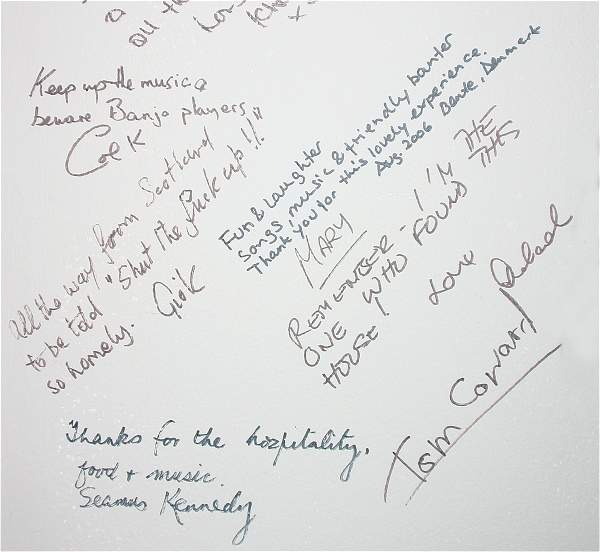 a
all th
Keep up the music &
beware Banjo players,,
All the way from Scotland
to be told "Shut the fuck up"!!
so homely.
Fun & Laughter
songs, music & friendly banter
Thank you for this lovely experience.
Aug. 2006 Bente, Denmark
MARY
REMEMBER - I'M THE
ONE WHO FOUND THIS
HOUSE
Love
Tom
Thanks for the hozpitality,
food + music.
Seamus Kennedy